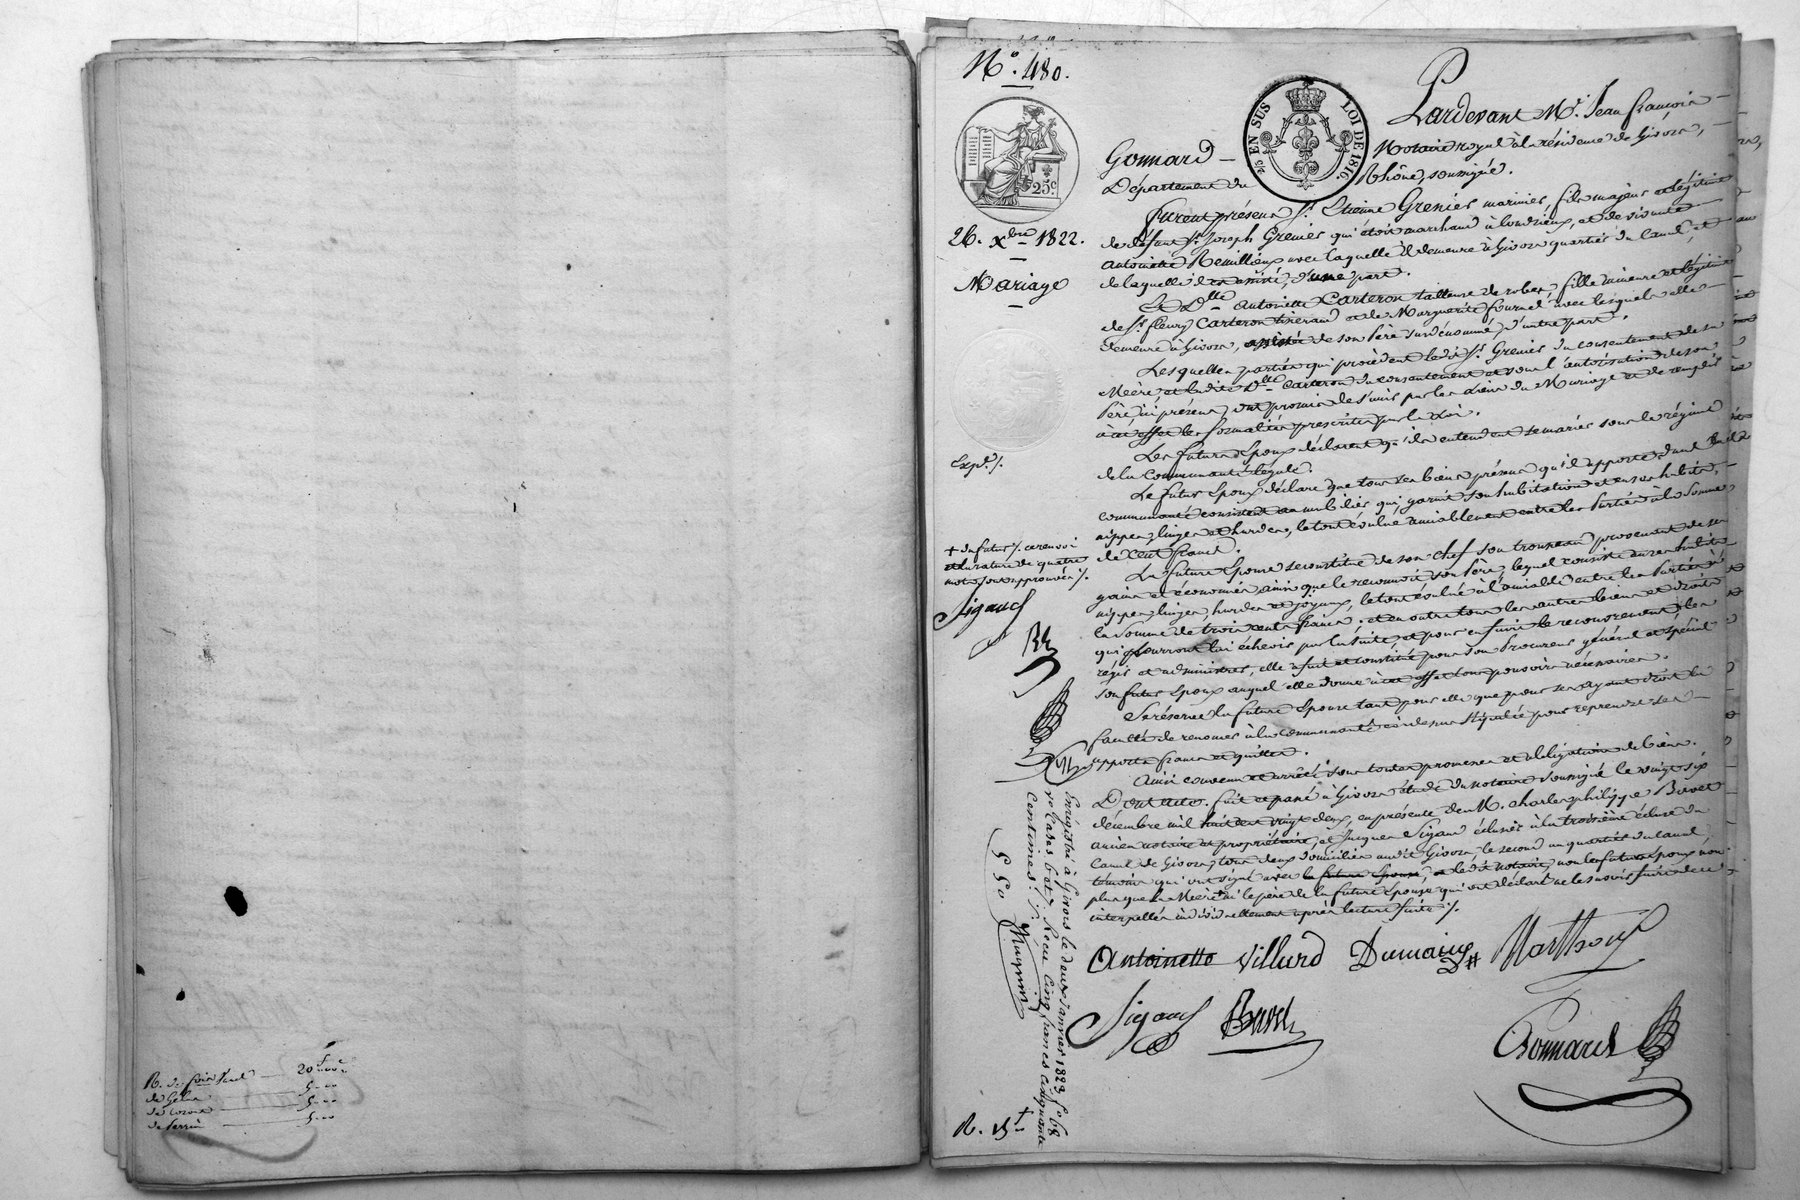 R. de
de Gelas
de
de Perrin
20 f. 00 c.
5 . 00
5 . 00
5 . 00
N.° 480.
25.c
26. Xbre 1822.
Mariage
Expd. /.
+ du futur /. ce renvoi
et la rature de quatre
mots sont approuvés /.
Sigaud
R. 15 f
EN SUS LOI DE 1816.
Pardevant M.e Jean François
Gonnard — Notaire royal à la résidence de Givors,
Département du Rhône, soussigné.
Furent présens S.r Etienne Grenier marinier, fils majeur et légitime
de défunt S.r Joseph Grenier qui étoit marchand à Condrieux, et de vivante
Antoinette Remillieux avec laquelle il demeure à Givors quartier du Canal, et
de laquelle il est assisté, d'une part.
Et D.lle Antoinette Carteron tailleuse de robes, fille mineure et légitime
de S.r fleury Carteron tisserand et de Marguerite fournel avec lesquels elle
demeure à Givors, assistée de son Père susdénommé, d'autre part.
Lesquelles parties qui procèdent le dit S.r Grenier du consentement de sa
Mère, et la dite D.lle Carteron du consentement et sous l'autorisation de son
Père, ici présens, ont promis de s'unir par les liens du Mariage et de remplir
à cet effet les formalités prescrites par la Loi.
Les futurs Epoux déclarent qu'ils entendent se marier sous le régime
de la Communauté légale.
Le futur Epoux déclare que tous ses biens présens qu'il apporte dans la
communauté consistent au mobilier qui garnit son habitation et en ses habits,
nippes, linges et hardes, le tout évalué amiablement entre les Parties à la Somme
de Cent francs.
La future Epouse se constitue de son chef son trousseau provenant de ses
gains et économies ainsi que le reconnoit son Père, lequel consiste en ses habits
nippes, linges, hardes et joyaux, le tout évalué à l'amiable entre les Parties à
la Somme de trois cents francs ; et en outre tous les autres biens et droits
qui pourront lui échoir par la suite, et pour en suivre le recouvrement, les
régir et administrer, elle a fait et constitué pour son Procureur général et spécial
son futur Epoux auquel elle donne à cet effet tous pouvoirs nécessaires.
Se réserve la future Epouse tant pour elle que pour ses ayant droit la
faculté de renoncer à la communauté ci-dessus stipulée pour reprendre ses
apports francs et quittes.
Ainsi convenu et arrêté sous toutes promesses et obligations de biens.
Dont acte. fait et passé à Givors étude du notaire soussigné le vingt six
décembre mil huit cent vingt deux, en présence de M. Charles philippe Bovet
ancien notaire et propriétaire, et Jacques Sigaud éclusier à la troisième écluse du
Canal de Givors, tous deux domiciliés audit Givors, le second au quartier du Canal,
témoins qui ont signé avec la future Epouse, et le dit notaire, non le futur époux non
plus que sa Mère ni le père de la future Epouse qui ont déclaré ne le savoir faire de ce
interpellés individuellement après lecture faite /.
Antoinette Villard Dumaine Marthoud
Sigaud Bovet
Gonnard
Enrégistré à Givors le deux janvier 1823, f.o 68
r.o Cases 6 et 7. Reçu Cinq francs cinquante
Centimes /.
5 50